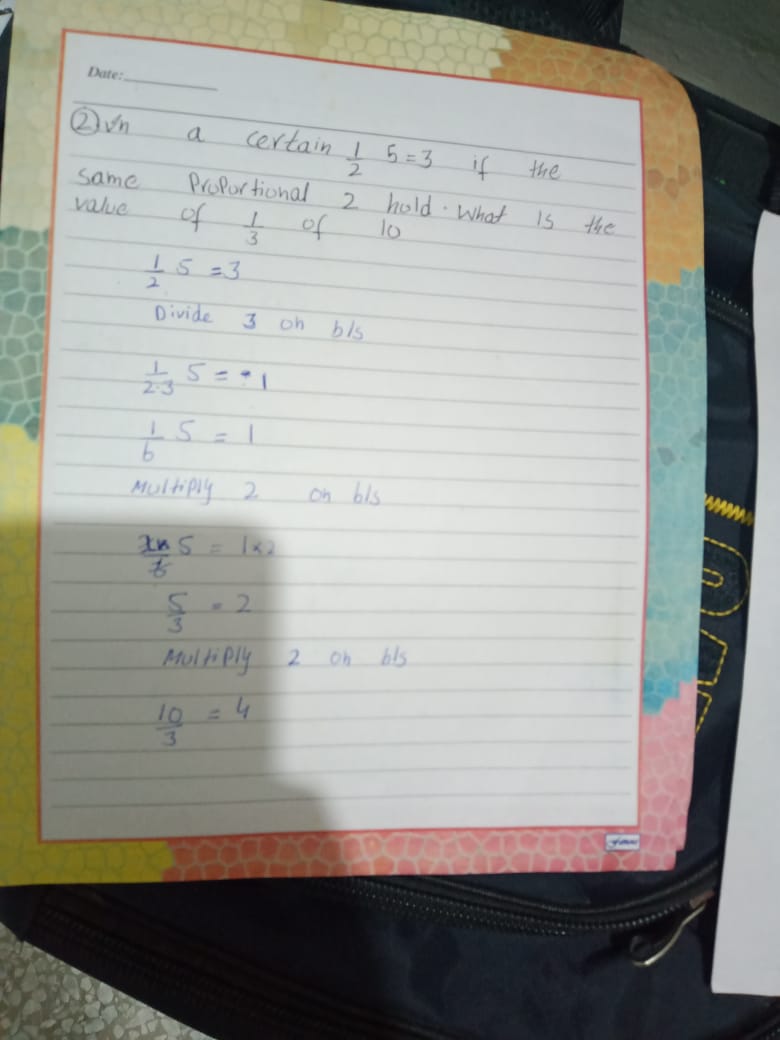 Date:
② In a certain 1/2 5 = 3 if the
same Proportional 2 hold. What is the
value of 1/3 of 10
1/2 5 = 3
Divide 3 on b/s
1/2·3 5 = 1
1/6 5 = 1
Multiply 2 on b/s
5 = 1×2
5/3 = 2
Multiply 2 on b/s
10/3 = 4